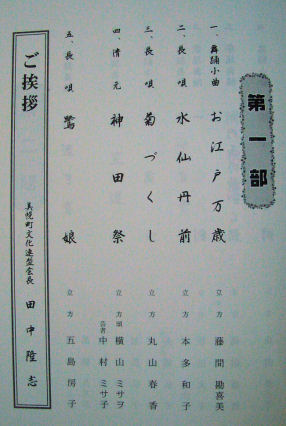 第一部
一、舞踊小曲 お江戸万歳 立方 藤間勘喜美
二、長唄 水仙丹前 立方 本多和子
三、長唄 菊づくし 立方 丸山春香
四、清元 神田祭 立方 頭 横山ミサヲ
芸者 中村ミサ子
五、長唄 鷺娘 立方 五島房子
ご挨拶 美幌町文化連盟会長 田中隆志